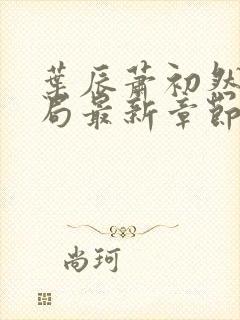 葉辰蕭初然
局最新章節
尚珂